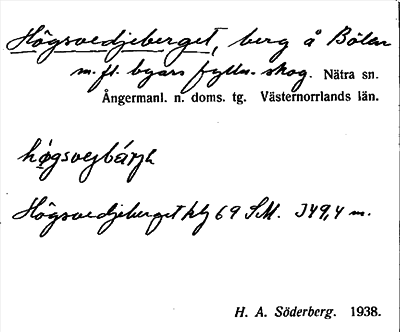 Högsvedjeberget, berg å Bölen
m. fl. byars fylln. skog. Nätra sn.
Ångermanl. n. doms. tg. Västernorrlands län.
Högsvedjeberget klj 69 SM. 349,4 m.
H. A. Söderberg. 1938.